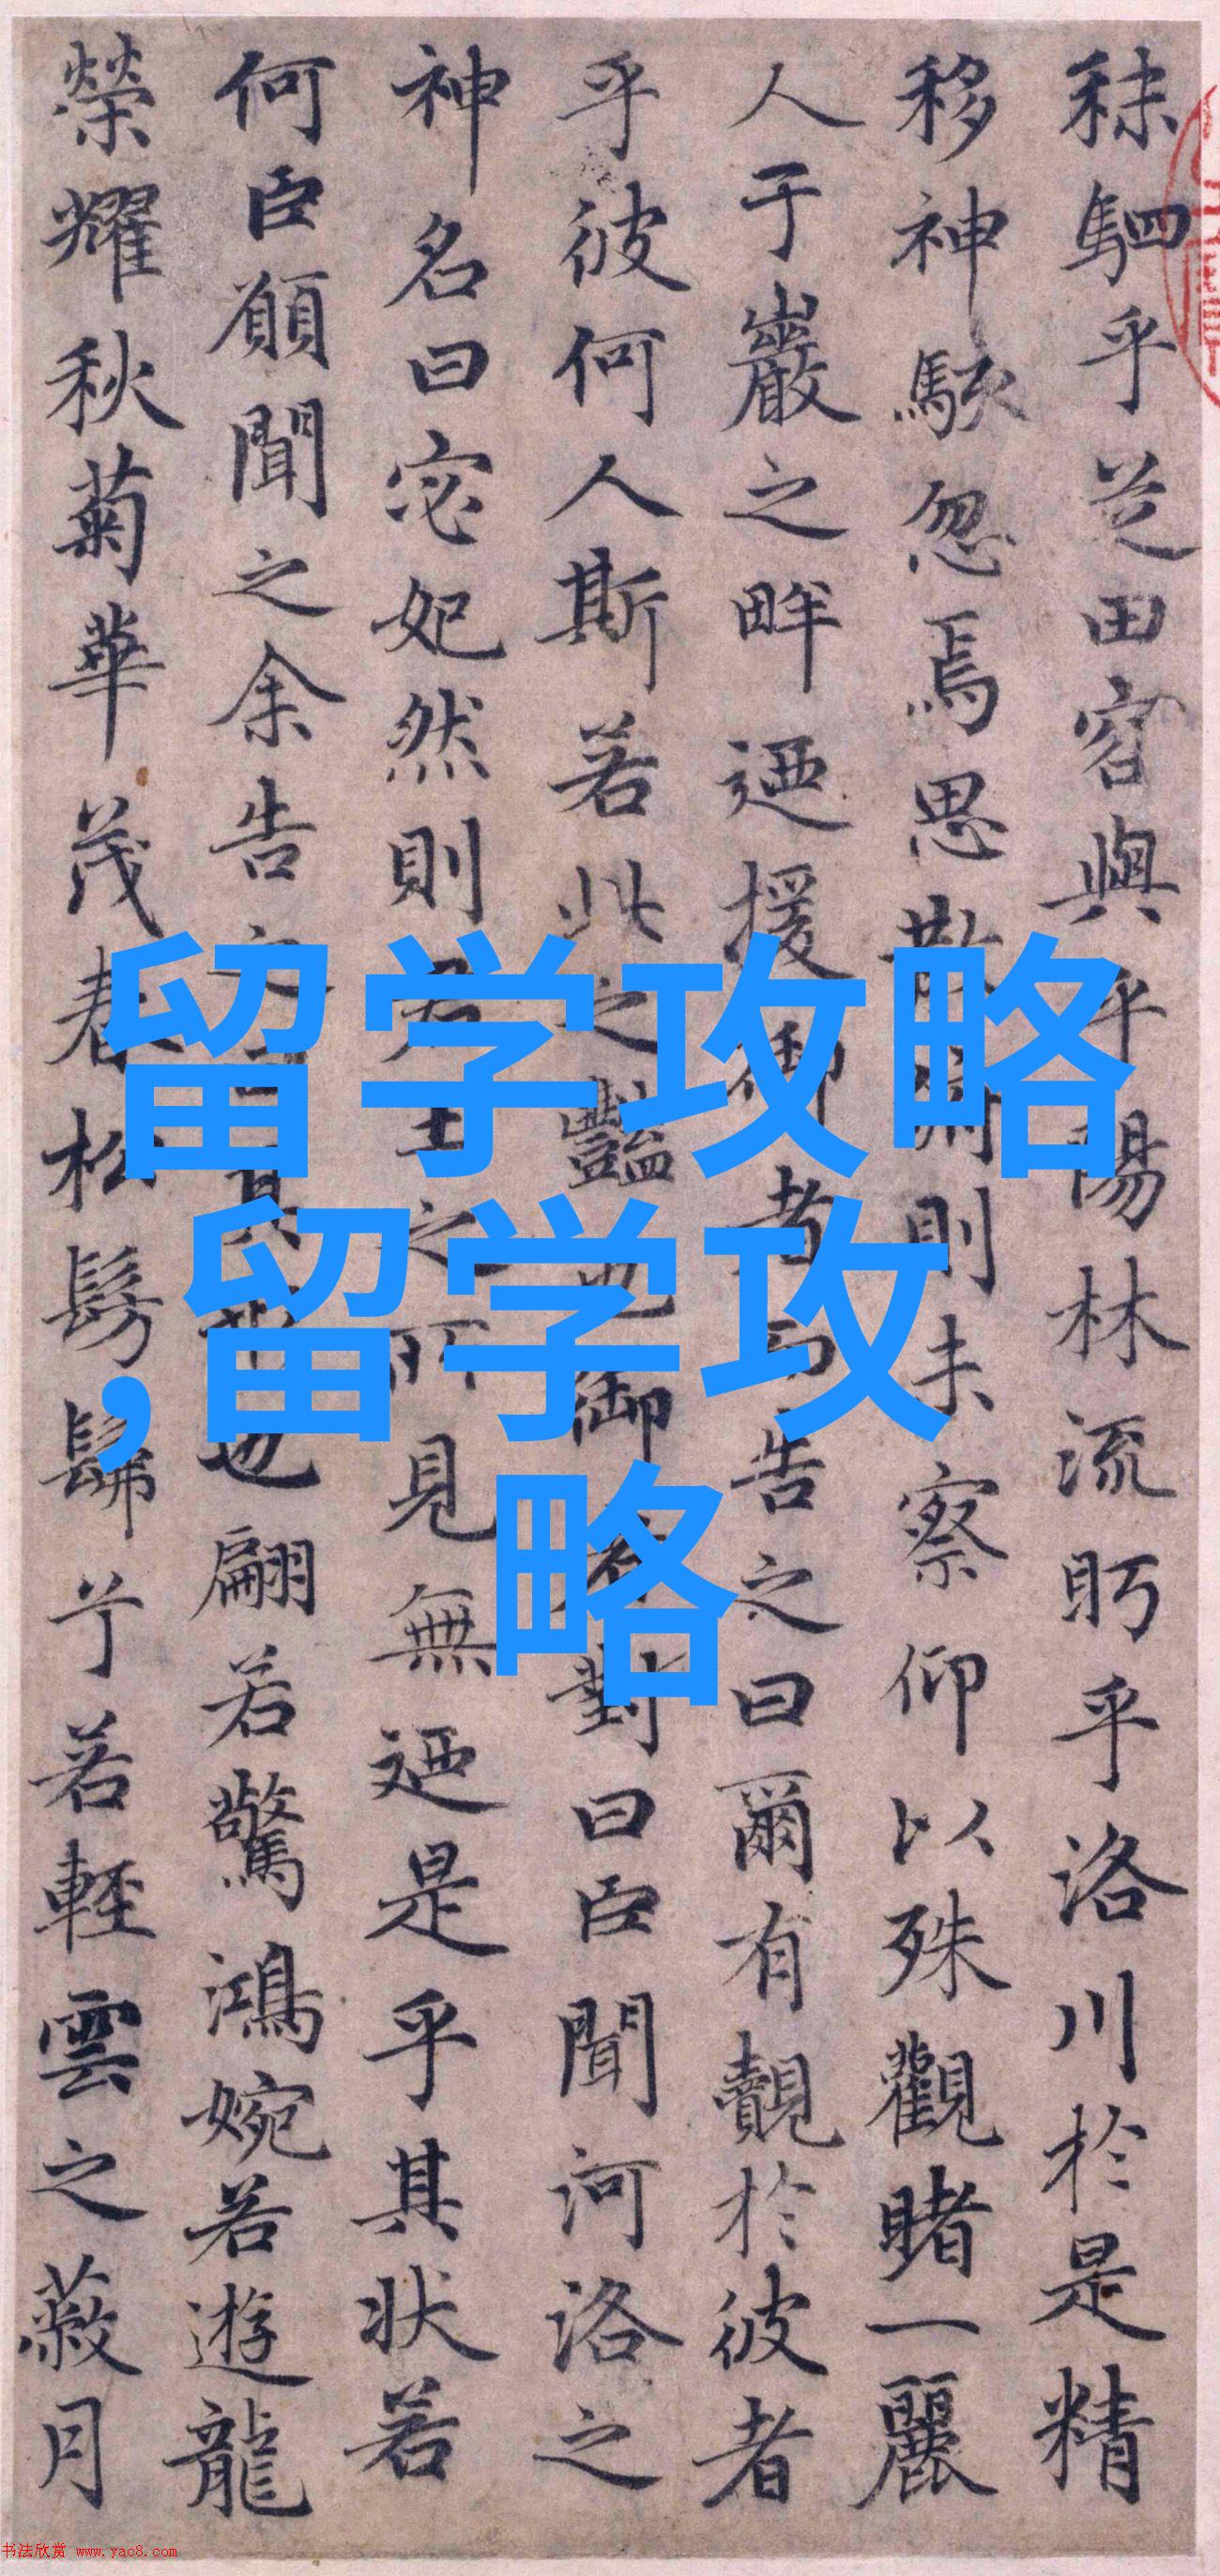 秣駟乎芝田容與乎陽林流眄乎洛川於是精
移神駭忽焉思散俯則未察仰以殊觀睹一麗
人于巖之畔迺援御者而告之曰爾有覿於彼者
乎彼何人斯若此之豔也御者對曰臣聞河洛之
神名曰宓妃然則君王之所見無迺是乎其狀若
何臣願聞之余告之其也翩若驚鴻婉若遊龍
榮耀秋菊華茂春松髣髴兮若輕雲之蔽月
留学攻略
,留学攻
略
书法欣赏 www.yac8.com